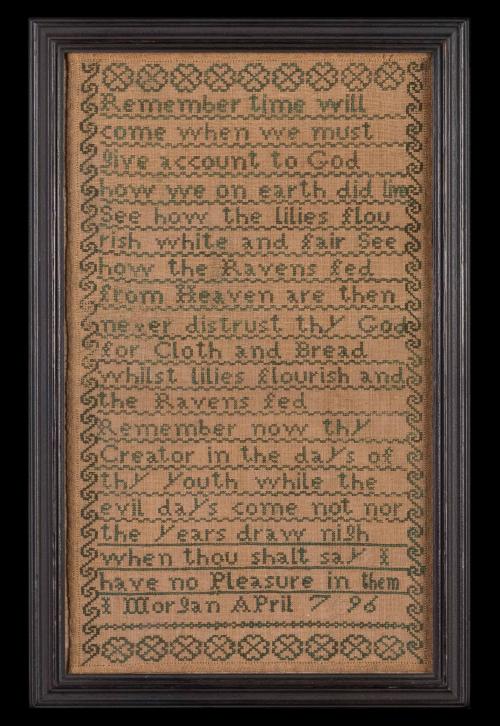 Remember time will
come when we must
give account to God
how we on earth did live
See how the lilies flou
rish white and fair See
how the Ravens fed
from Heaven are then
never distrust thy God
for Cloth and Bread
whilst lilies flourish and
the Ravens fed
Remember now thy
Creator in the days of
thy youth while the
evil days come not nor
the years draw nigh
when thou shalt say I
have no Pleasure in them
I Morgan APril 7 96